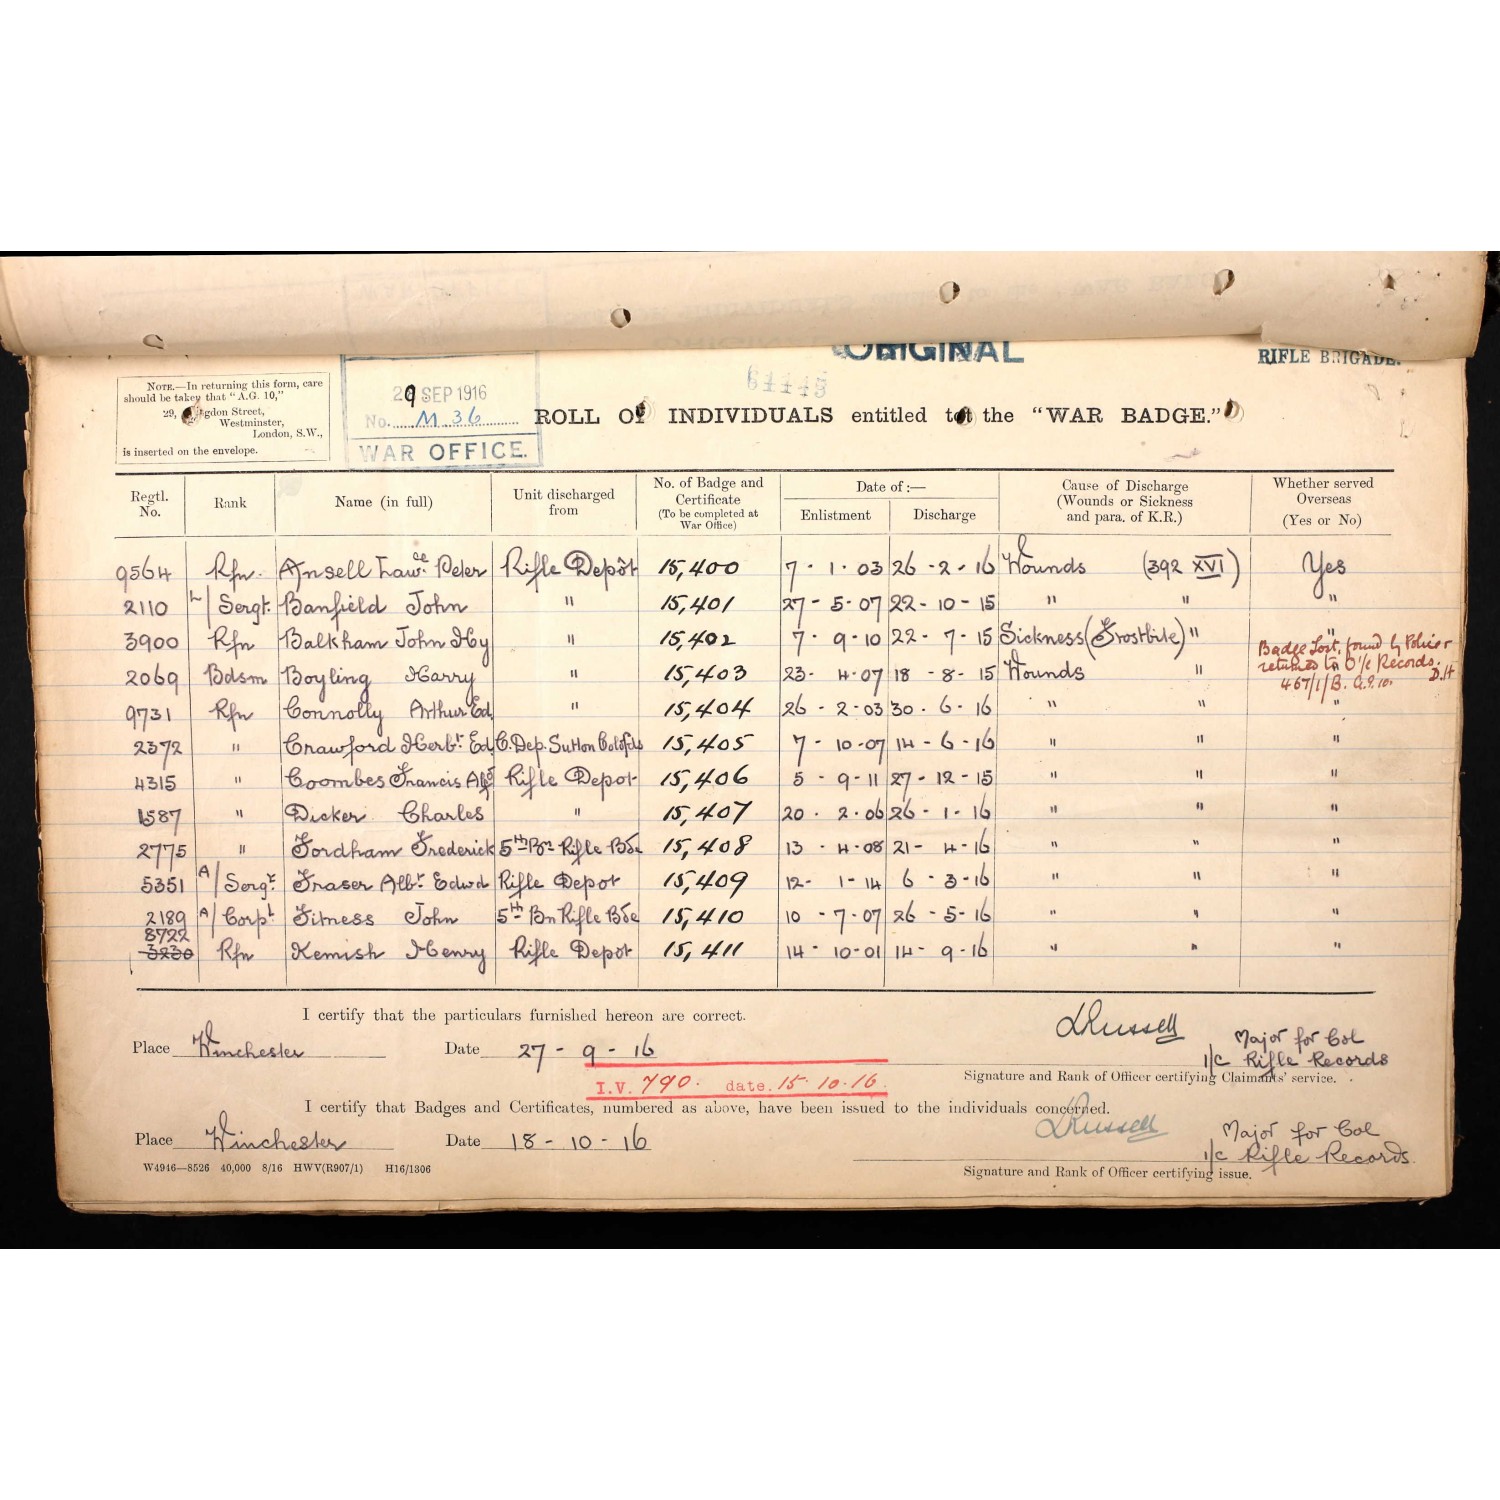 ORIGINAL
RIFLE BRIGADE.
64449
NOTE.—In returning this form, care
should be taken that "A.G. 10,"
29, Abingdon Street,
Westminster,
London, S.W.,
is inserted on the envelope.
29 SEP 1916
No. M 36
WAR OFFICE.
ROLL OF INDIVIDUALS entitled to the "WAR BADGE."
Regtl. No. Rank Name (in full) Unit discharged from No. of Badge and Certificate (To be completed at War Office) Date of:— Enlistment Discharge Cause of Discharge (Wounds or Sickness and para. of K.R.) Whether served Overseas (Yes or No)
9564 Rfn. Ansell Lawce Peter Rifle Depôt 15,400 7 - 1 - 03 26 - 2 - 16 Wounds (392 XVI) Yes
2110 L/Sergt. Banfield John " 15,401 27 - 5 - 07 22 - 10 - 15 " " "
3900 Rfn Balkham John Hy " 15,402 7 - 9 - 10 22 - 7 - 15 Sickness (Frostbite) " "
Badge Lost, found by Police &
returned to O i/c Records.
467/1/B. A.G.10. D.H
2069 Bdsm Boyling Harry " 15,403 23 - 4 - 07 18 - 8 - 15 Wounds " "
9731 Rfn Connolly Arthur Ed. " 15,404 26 - 2 - 03 30 - 6 - 16 " " "
2372 " Crawford Herbt Ed. C. Dep. Sutton Coldfds 15,405 7 - 10 - 07 14 - 6 - 16 " " "
4315 " Coombes Francis Alfd Rifle Depot 15,406 5 - 9 - 11 27 - 12 - 15 " " "
1587 " Dicker Charles " 15,407 20 - 2 - 06 26 - 1 - 16 " " "
2775 " Fordham Frederick 5th Bn Rifle Bde 15,408 13 - 4 - 08 21 - 4 - 16 " " "
5351 A/Sergt. Fraser Albt Edwd Rifle Depot 15,409 12 - 1 - 14 6 - 3 - 16 " " "
2189 A/Corpl Fitness John 5th Bn Rifle Bde 15,410 10 - 7 - 07 26 - 5 - 16 " " "
8722
3230 Rfn Kemish Henry Rifle Depot 15,411 14 - 10 - 01 14 - 9 - 16 " " "
I certify that the particulars furnished hereon are correct.
Place Winchester Date 27 - 9 - 16 Russell Major for Col
i/c Rifle Records
Signature and Rank of Officer certifying Claimants' service.
I.V. 790. date. 15.10.16.
I certify that Badges and Certificates, numbered as above, have been issued to the individuals concerned.
Place Winchester Date 18 - 10 - 16 Russell Major for Col
i/c Rifle Records
Signature and Rank of Officer certifying issue.
W4946—8526 40,000 8/16 HWV(R907/1) H16/1306